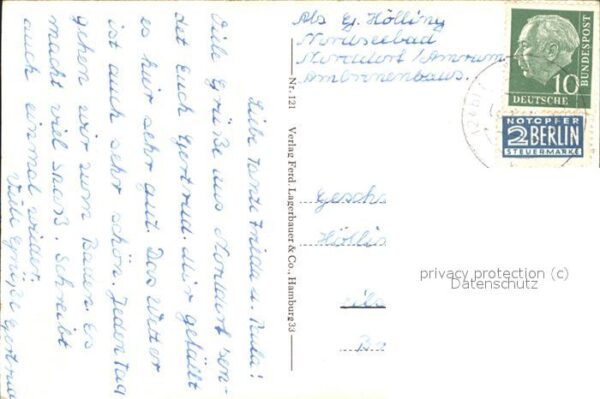 Abs G. Hölling
Nordseebad
Norddorf/Amrum
Ambronenhaus.
10
DEUTSCHE
BUNDESPOST
NOTOPFER
2 BERLIN
STEUERMARKE
Liebe Tante Frieda u. Paula!
Viele Grüße aus Norddorf sen-
det Euch Gertrud. Mir gefällt
es hier sehr gut. Das Wetter
ist auch sehr schön. Jeden Tag
gehen wir zum Baden. Es
macht viel Spaß. Schreibt
auch einmal wieder.
Viele Grüße Gertrud
Nr. 121 Verlag Ferd. Lagerbauer & Co., Hamburg 33
Gesch
Höllin
Ba
privacy protection (c)
Datenschutz